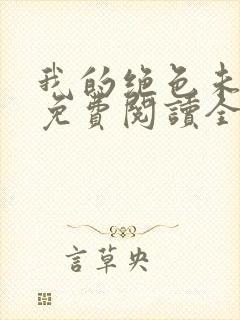 我的絕色未
免費閱讀全
言草央